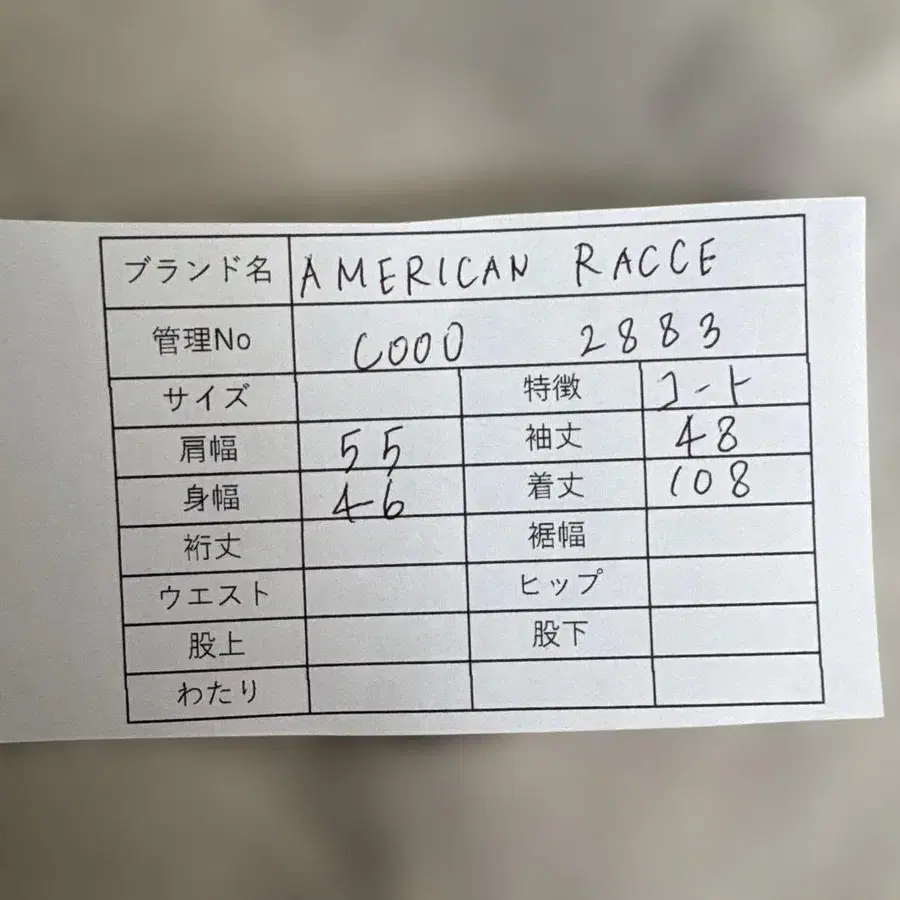 ブランド名 AMERICAN RACCE
管理No C000 2883
サイズ 特徴 コート
肩幅 55 袖丈 48
身幅 46 着丈 108
裄丈 裾幅
ウエスト ヒップ
股上 股下
わたり